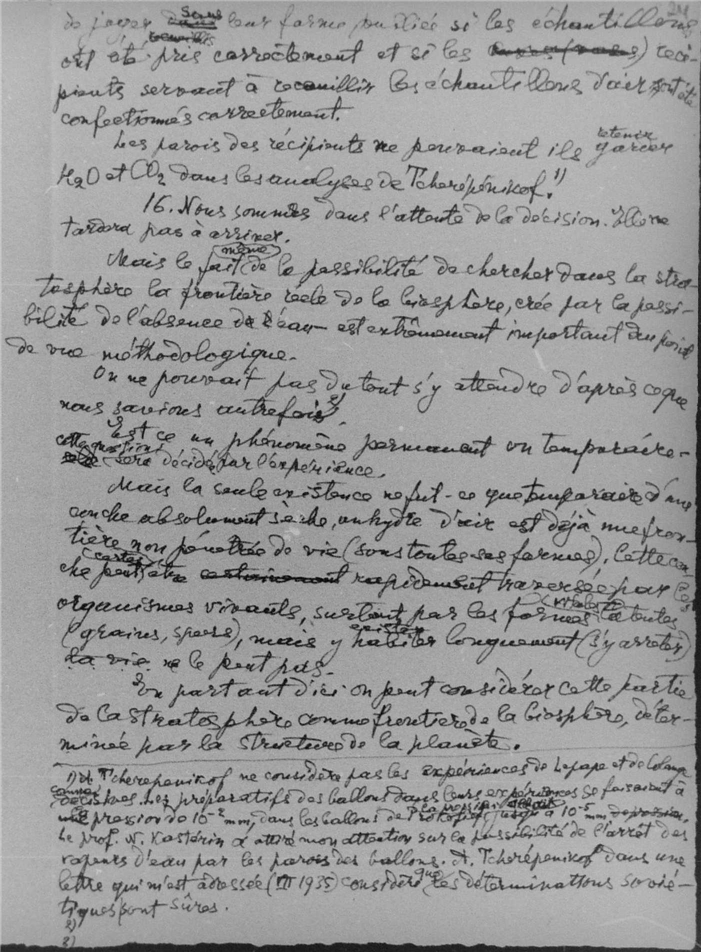 de juger sans dans leur forme publiée si les échantillons
ont été pris correctement et si les réci-
pients servant à recueillir les échantillons d'air ont été
confectionnés correctement.
Les parois des récipients ne pouvaient ils retenir garder
H2O et CO2 dans les analyses de Tcherépénikof. 1)
16. Nous sommes dans l'attente de la décision. Elle ne
tardera pas à arriver.
Mais le fait même de la possibilité de chercher dans la stra-
tosphère la frontière réele de la biosphère, crée par la possi-
bilité de l'absence de l'eau – est extrêmement important du point
de vue méthodologique.
On ne pouvait pas du tout s'y attendre d'après ce que
nous savions autrefois 2).
Est ce un phénomène permanent ou temporaire –
cette question sera décidée par l'expérience.
Mais la seule existence ne fut-ce que temporaire d'une
couche absolument sèche, anhydre d'air est déjà une fron-
tière non pénétrée de vie (sous toutes ses formes). Cette cou-
che peut être certes rapidement traversée par les
organismes vivants, surtout par les formes latentes
(grains, spores), mais y exister habiter longuement (s'y arreter)
la vie ne le peut pas.
En partant d'ici on peut considérer cette partie
de la stratosphère comme frontière de la biosphère, déter-
minée par la structure de la planète.
1) A. Tcherepenikof ne considère pas les expériences de Lepape et de Colange
comme décisives. Les préparatifs des ballons dans leurs expériences se faisaient à
une pression de 10-2 mm, dans les ballons de Prokofief la pression jusqu'à 10-5 mm de pression.
Le prof. N. Kastérin a attiré mon attention sur la possibilité de l'arrêt des
vapeurs d'eau par les parois des ballons. A. Tcherépenikof dans une
lettre qui m'est adressée (III 1935) considère que les déterminations sovié-
tiques sont sûres.
2)
3)